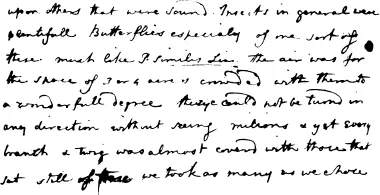 upon others that were sound. Insects in general were
plentifull Butterflies especialy of one sort of
these much like P. Similis Lin. the air was for
the space of 3 or 4 acres crowded with them to
a wonderfull degree the eye could not be turnd in
any direction without seeing milions & yet every
branch & twig was almost coverd with those that
sat still of these we took as many as we chose